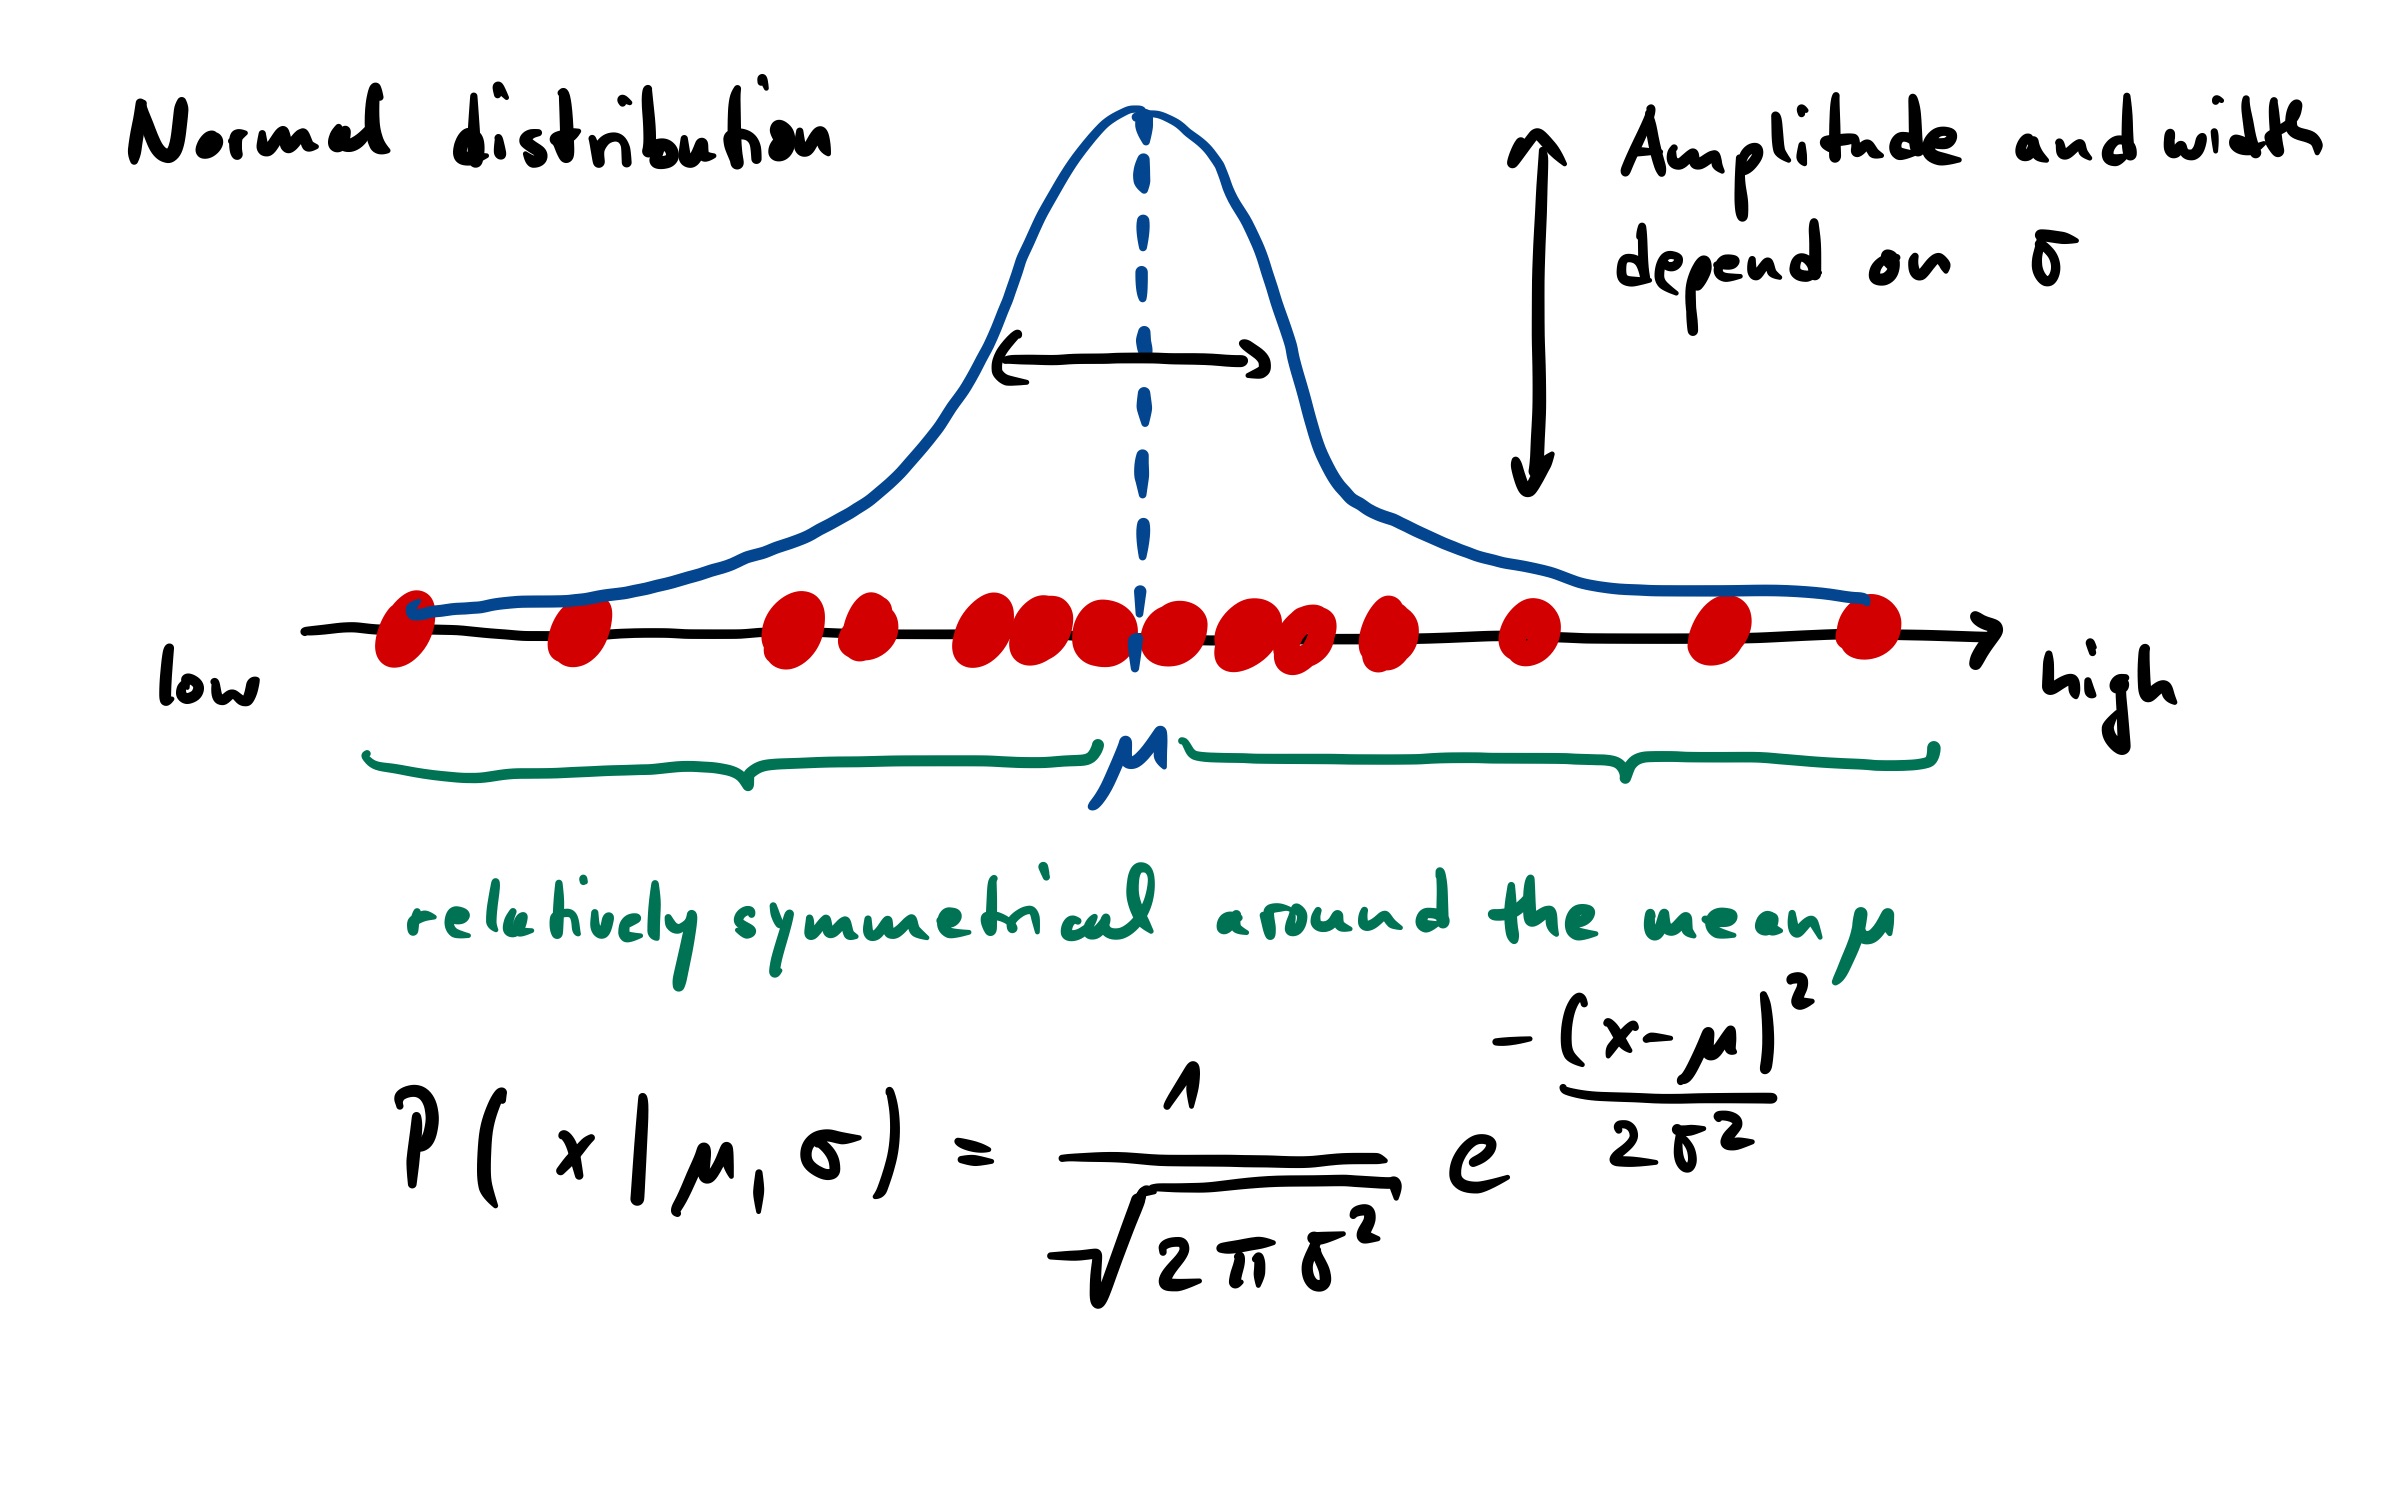 Normal distribution
Amplitude and width
depend on σ
low
high
μ
relatively symmetrical around the mean μ
P(x|μ, σ) = 1/√(2πσ²) e^(-(x-μ)²/(2σ²))